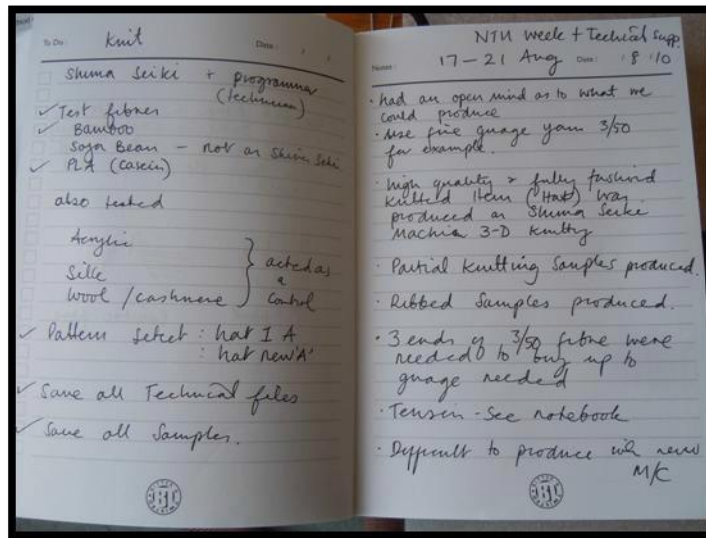 To Do:
Knit
Date:
Shima Seiki + programmer
(technician)
✓ Test fibres
✓ Bamboo
Soya Bean – not on Shima Seiki
✓ PLA (casein)
also tested
Acrylic
Silk
Wool / cashmere
acted as
a
control
✓ Pattern select : hat I A
: hat new 'A'
✓ Save all Technical files
✓ Save all Samples.
NTU week + Techical Supp.
Notes:
17 – 21 Aug Date: 8 10
· had an open mind as to what we
could produce
· Use fine guage yarn 3/50
for example.
· high quality & fully fashind
knitted item (Hat) was
produced on Shima Seiki
Machin 3-D knitting
· Partial knitting Samples produced.
· Ribbed Samples produced.
· 3 ends of 3/50 fibre were
needed to bring up to
guage needed
· Tension - See notebook
· Difficult to produce with new
M/C